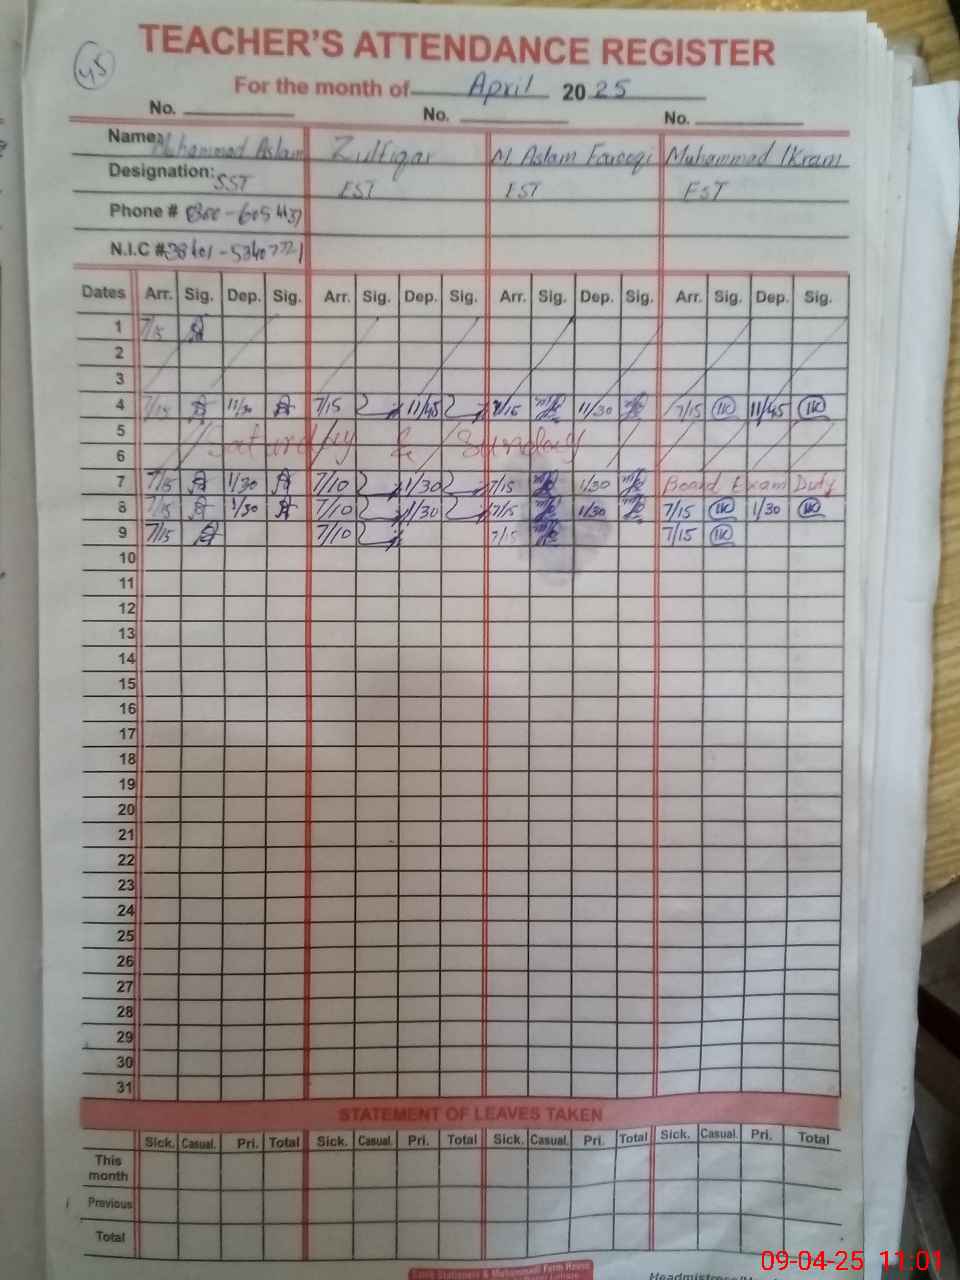 45
TEACHER'S ATTENDANCE REGISTER
For the month of April 2025
No. No. No.
Name: Muhammad Aslam Zulfiqar M Aslam Farooqi Muhammad Ikram
Designation: SST EST EST EST
Phone #
N.I.C #
Dates Arr. Sig. Dep. Sig. Arr. Sig. Dep. Sig. Arr. Sig. Dep. Sig. Arr. Sig. Dep. Sig.
1 7/15
2
3
4 7/15 11/30 7/15 11/45 7/15 11/30 7/15 11/45
5 Saturday & Sunday
6
7 7/15 1/30 7/10 1/30 7/15 1/30 Board Exam Duty
8 7/15 1/30 7/10 1/30 7/15 1/30 7/15 1/30
9 7/15 7/10 7/15 7/15
10
11
12
13
14
15
16
17
18
19
20
21
22
23
24
25
26
27
28
29
30
31
STATEMENT OF LEAVES TAKEN
Sick. Casual. Pri. Total Sick. Casual. Pri. Total Sick. Casual. Pri. Total Sick. Casual. Pri. Total
This month
Previous
Total
09-04-25 11:01